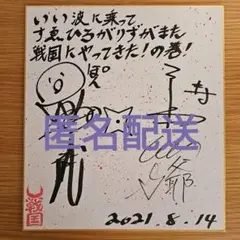 いい波に乗って
すゑひろがりずがまた
戦国にやってきた!の巻!
寿
匿名配送
戦国
2021.8.14